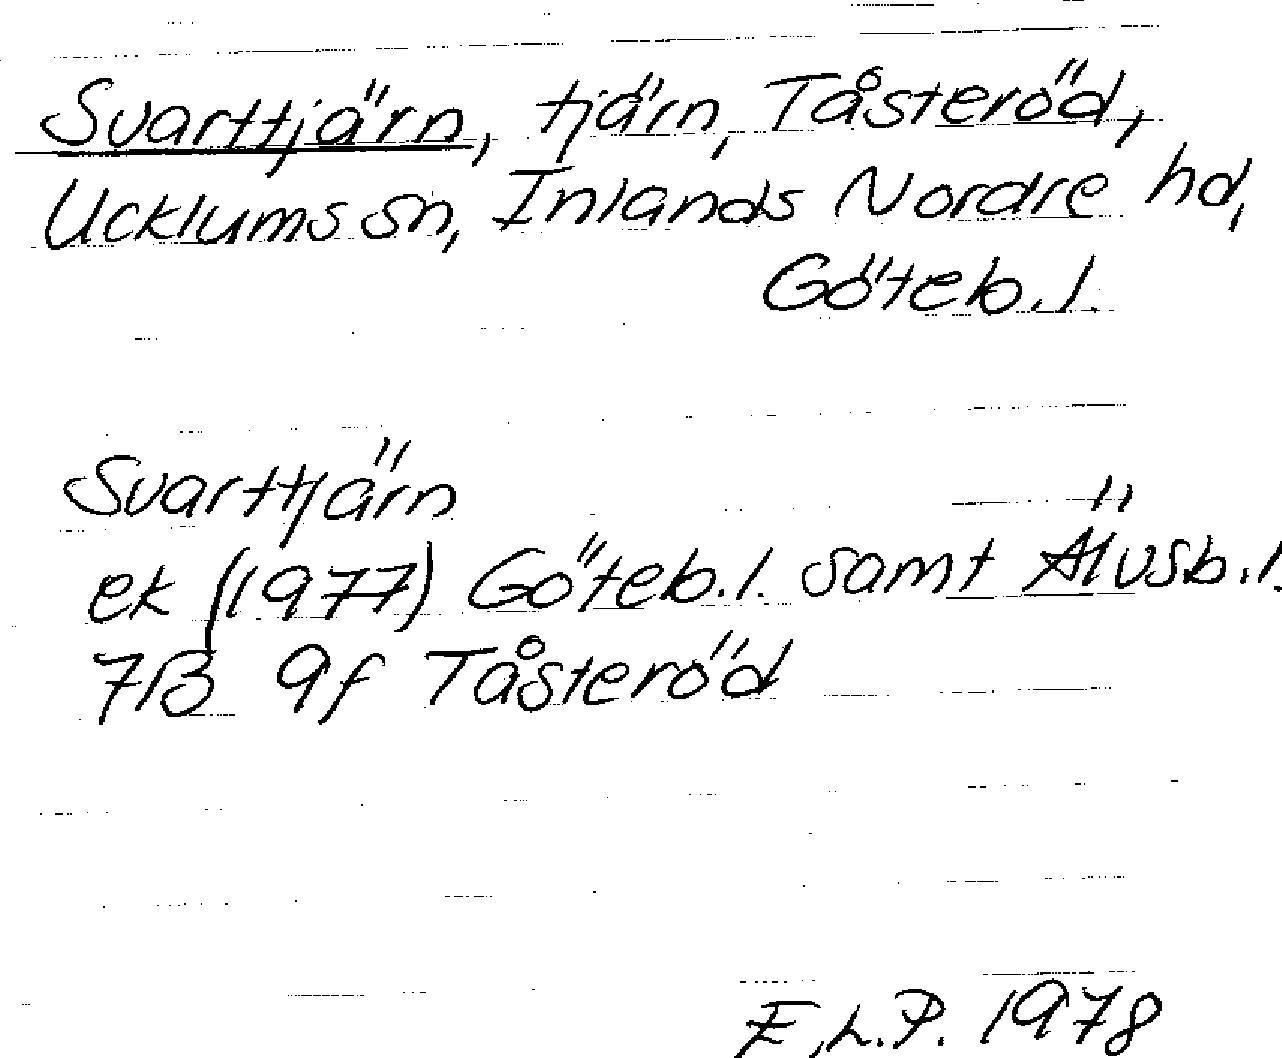 Svarttjärn, tjärn, Tåsteröd,
Ucklums sn, Inlands Nordre hd,
Göteb.l.
Svarttjärn
ek (1977) Göteb.l. samt Älvsb.l.
7B 9f Tåsteröd
E.L.P. 1978